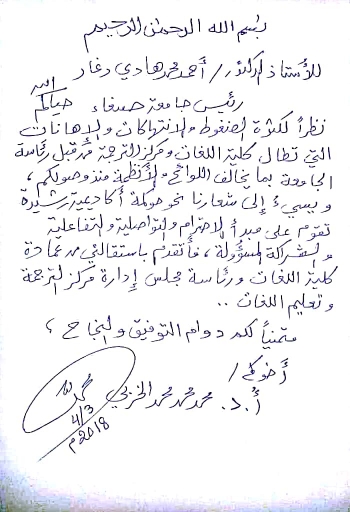 بسم الله الرحمن الرحيم
للأستاذ الدكتور / أحمد محمد هادي دغار
رئيس جامعة صنعاء حياكم الله
نظراً لكثرة الضغوط والانتهاكات والإهانات
التي تطال كلية اللغات ومركز الترجمة من قبل رئاسة
الجامعة بما يخالف اللوائح والأنظمة منذ وصولكم ،
ويسيء إلى شعارنا نحو حوكمة أكاديمية رشيدة
تقوم على مبدأ الاحترام والتواصلية والتفاعلية
والشراكة المسؤولة ، فأتقدم باستقالتي من عمادة
كلية اللغات ورئاسة مجلس إدارة مركز الترجمة
وتعليم اللغات ..
متمنياً لكم دوام التوفيق والنجاح ،
أخوكم /
أ.د. محمد محمد محمد الخربي
4/3
2018م